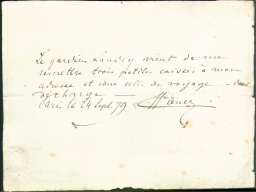 Le gardien Lancey vient de me
remettre trois petites caisses à mon
adresse et une selle de voyage — dont
décharge.
Paris le 24 Sept. 79